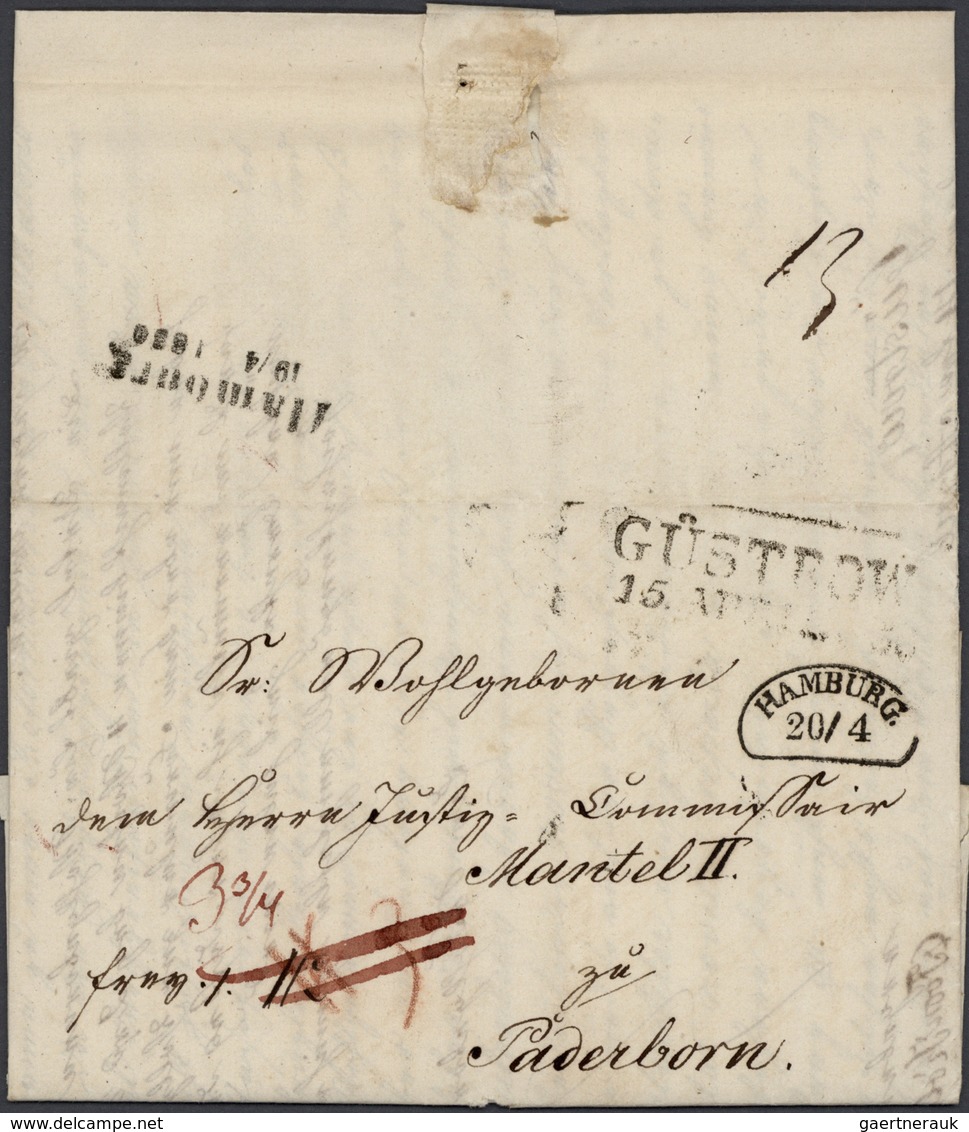 13
Hamburg
19/4 1836
GÜSTROW
15. APRIL
HAMBURG.
20/4
Sr: Wohlgebornen
dem Herrn Justiz= Commissair
Mantel II.
3 3/4
frey.
zu
Paderborn.
www.delcampe.net
gaertnerauk